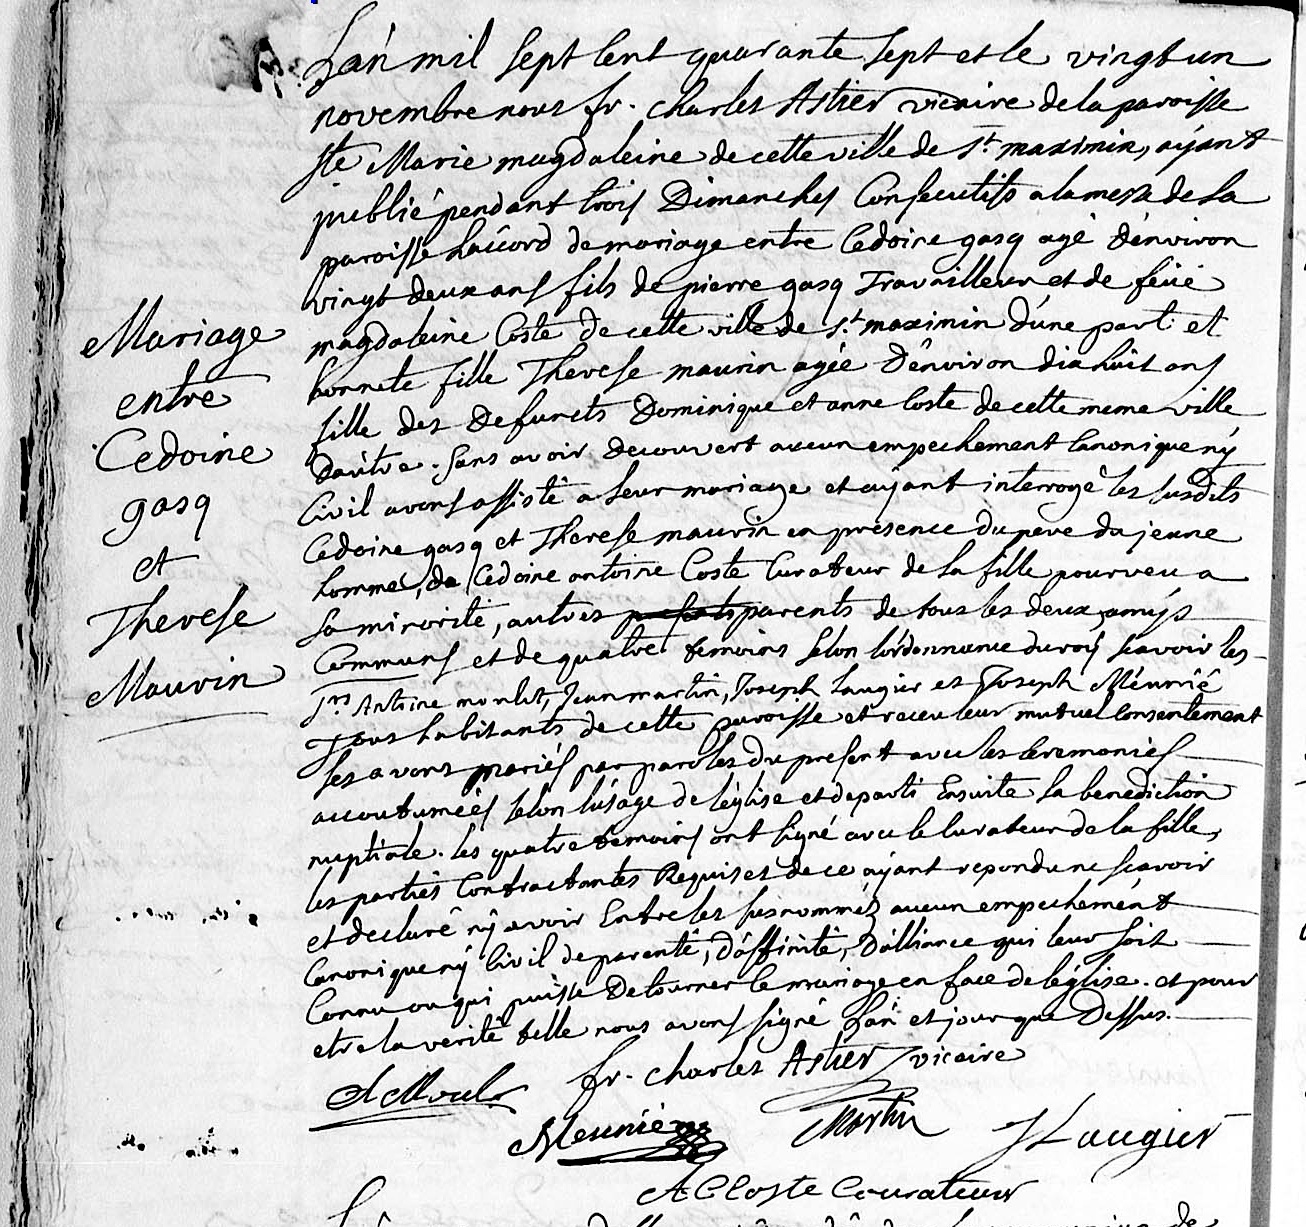 Lán mil sept Cent quarante sept et le vingt un
novembre nous fr. charles Astier vicaire de la paroisse
ste Marie magdaleine de cette ville de st maximin, aÿant
publié pendant trois Dimanches Consecutifs a la messe de la
paroisse L'accord de mariage entre Cedoine gasq agé d'environ
vingt deux ans fils de pierre gasq Travailleur et de féüe
magdaleine Coste de cette ville de st maximin d'une part et
honnete fille Therese maurin agée d'environ dix huit ans
fille des Defuncts Dominique et anne Coste de cette meme ville
d'autre. sans avoir decouvert aucun empechement Canonique nÿ
Civil avons assisté a leur mariage et aÿant interrogé les susdits
Cedoine gasq et Therese maurin en présence du pere du jeune
homme, de Cedoine antoine Coste Curateur de la fille pourveu a
sa minorité, autres parents de tous les deux, amÿs
Communs et de quatre temoins selon l'ordonnance du roÿ scavoir les
srs Antoine moulet, Jean martin, Joseph laugier et Joseph Méunié
Tous habitants de cette paroisse et receu leur mutuel Consentement
les avons mariés par paroles du present avec les Ceremonies
accoutumées selon l'úsage de léglise et departi Ensuite la benediction
nuptiale. les quatre temoins ont signé avec le Curateur de la fille,
les parties Contractantes Requises de ce aÿant repondu ne scavoir
et declaré nÿ avoir Entre les susnommés aucun empechemént
Canonique nÿ Civil de parenté, d'affinité, d'alliance qui leur soit
Connu ou qui puisse Detourner le mariage en face de l'église. et pour
etre la verité telle nous avons signé L'an et jour que Dessus.
Mariage
entre
Cedoine
gasq
et
Therese
Maurin
fr. charles Astier vicaire
A Moulet
Meunié
Martin
J Laugier
A Coste Courateur